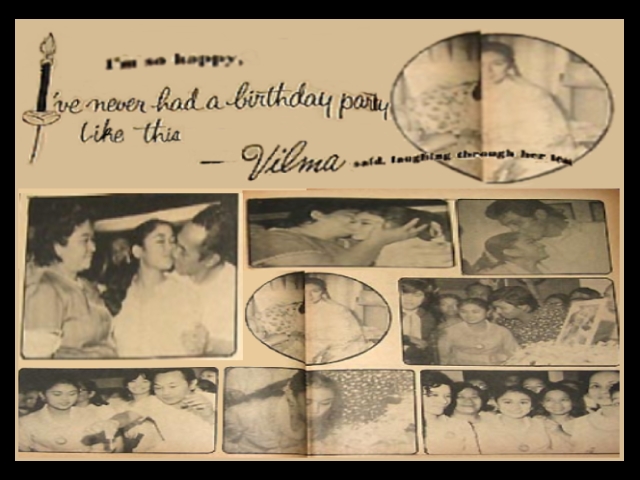 I'm so happy,
I've never had a birthday party
like this
— Vilma said, laughing through her tears